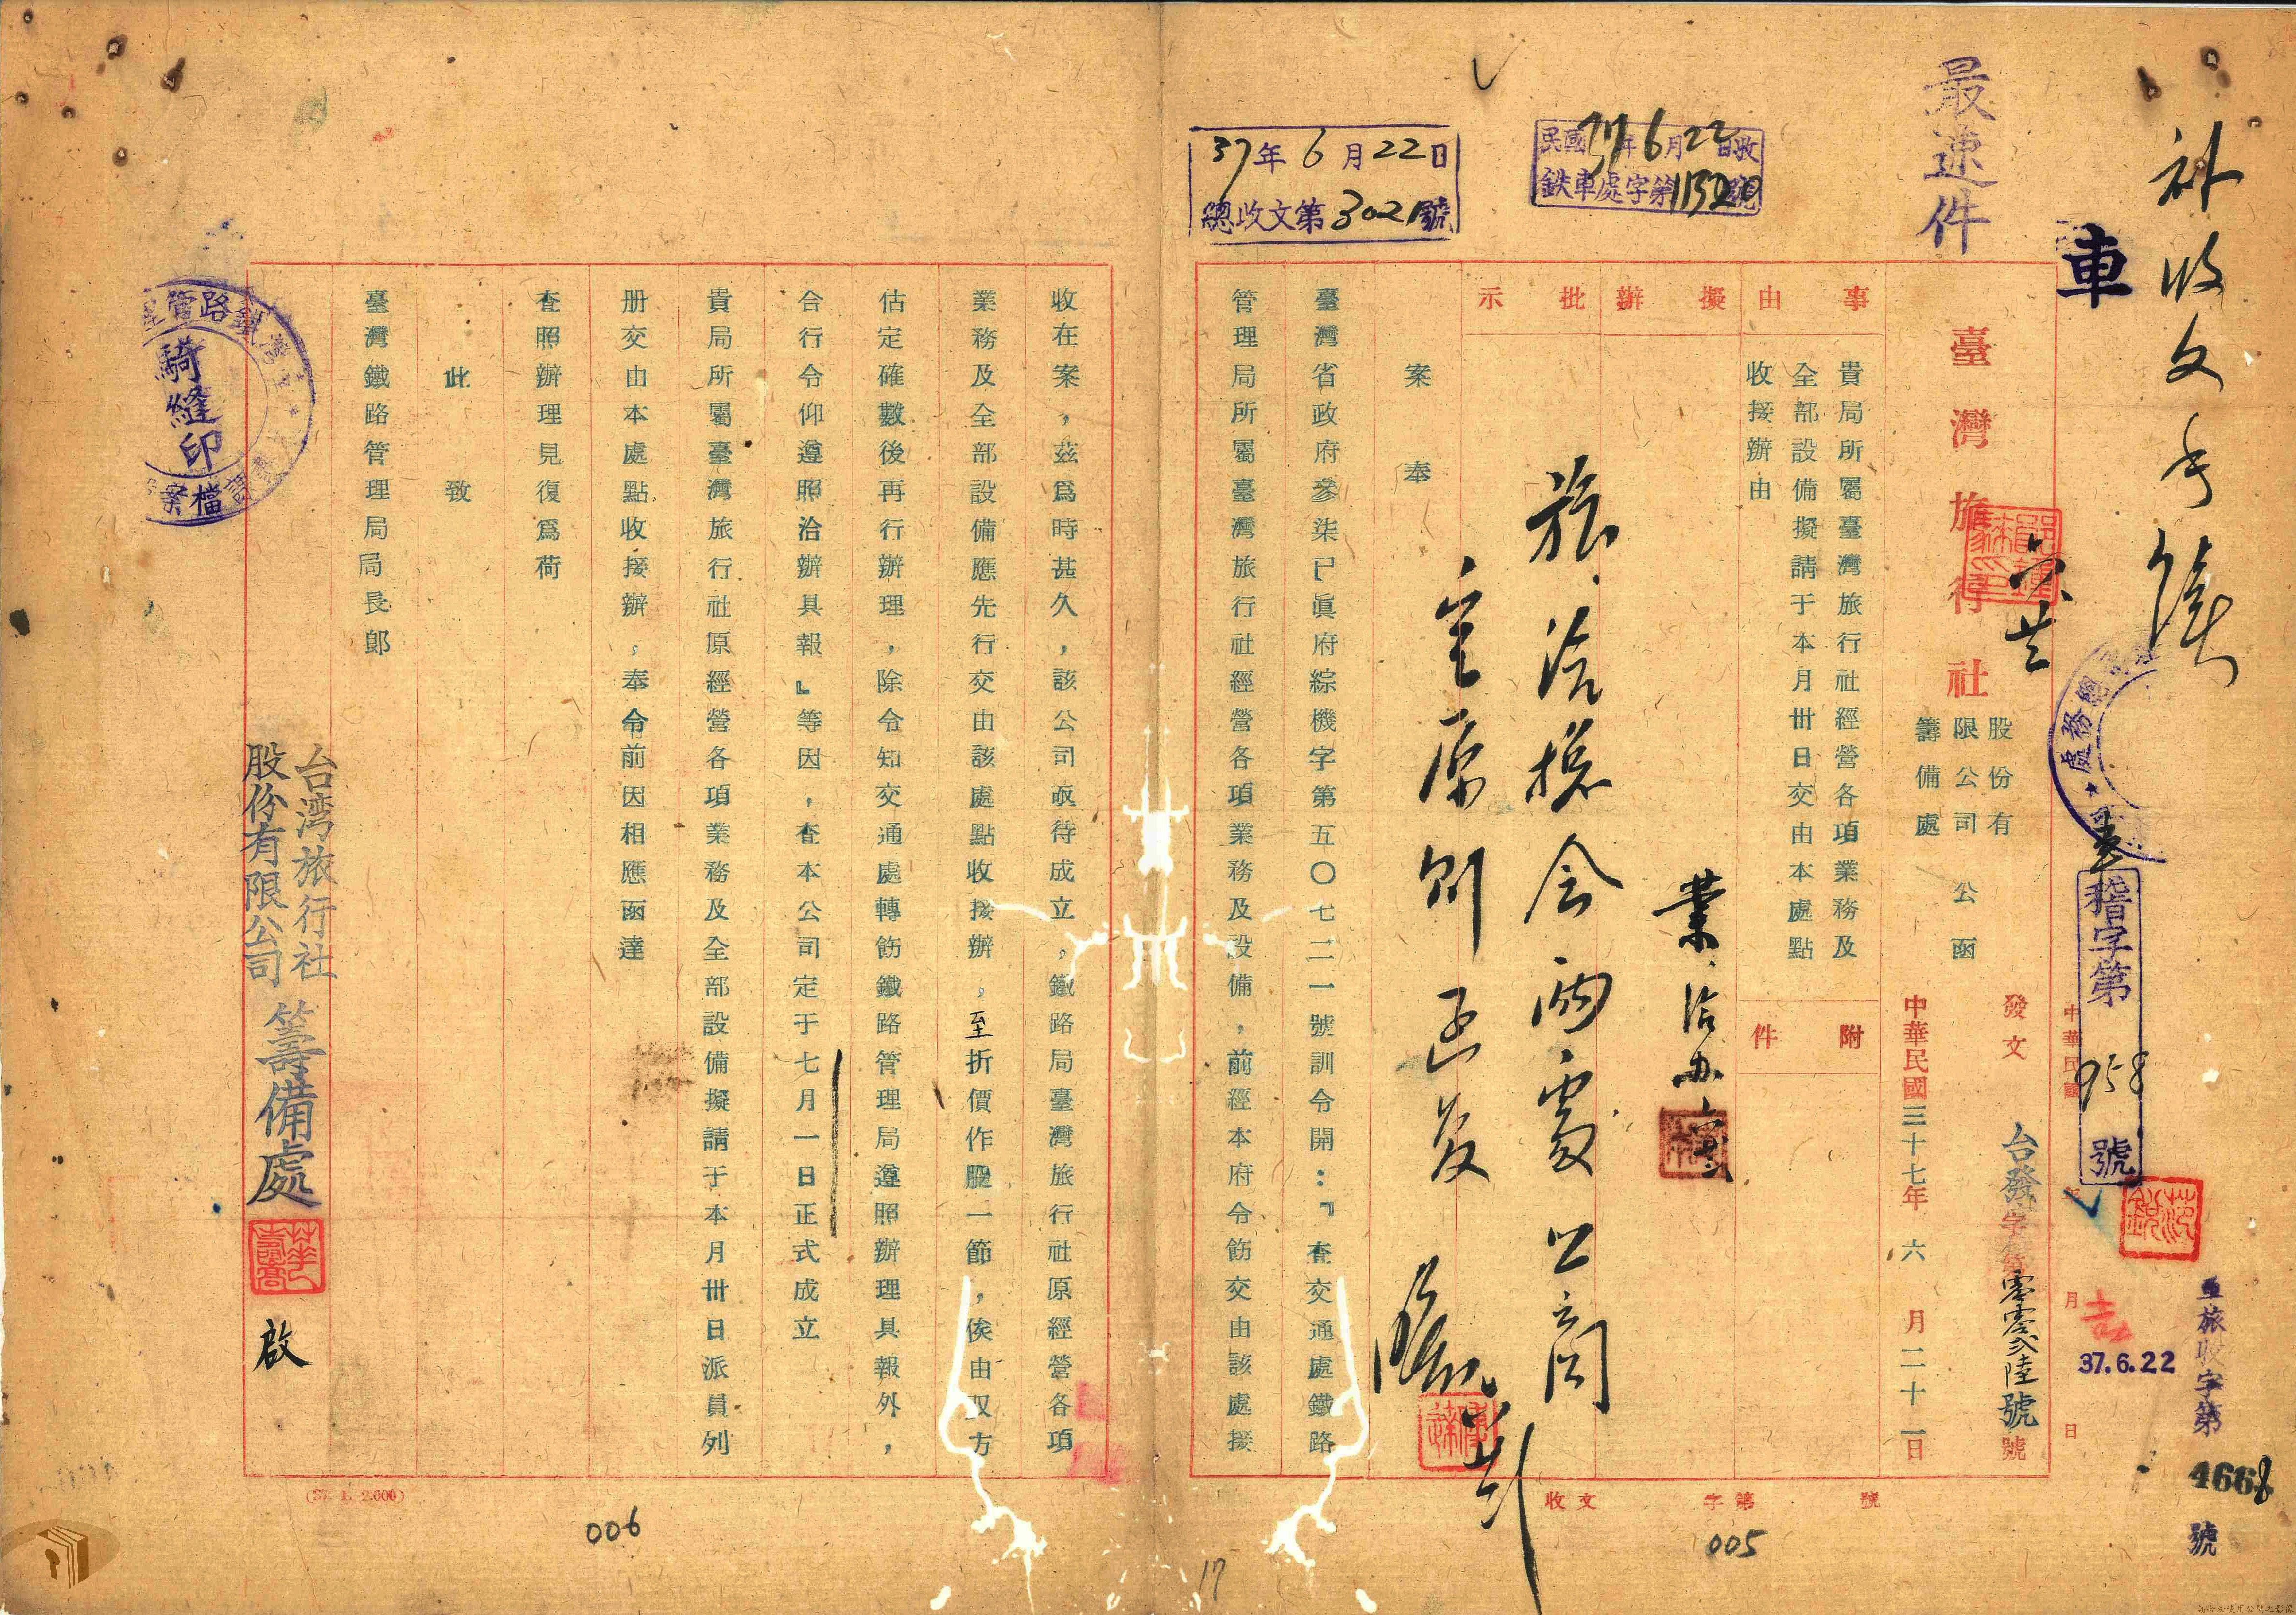 補收文手續
最速件
車
臺灣旅行社
股份有
限公司
籌備處
公函
發文
台發字第零零弍陸號
中華民國三十七年六月二十一日
總務處
稽字第958號
37.6.22
旅收字第4668號
37年6月22日
總收文第3021號
民國37年6月22日收
鉄車處字第11520號
事由
貴局所屬臺灣旅行社經營各項業務及
全部設備擬請于本月卅日交由本處點
收接辦由
附件
擬辦
批示
業洽办
案奉
臺灣省政府參柒巳眞府綜機字第五〇七二一號訓令開：『查交通處鐵路
管理局所屬臺灣旅行社經營各項業務及設備，前經本府令飭交由該處接
收文 字第 號
005
收在案，茲爲時甚久，該公司亟待成立，鐵路局臺灣旅行社原經營各項
業務及全部設備應先行交由該處點收接辦，至折價作股一節，俟由双方
估定確數後再行辦理，除令知交通處轉飭鐵路管理局遵照辦理具報外，
合行令仰遵照洽辦具報』等因，查本公司定于七月一日正式成立
貴局所屬臺灣旅行社原經營各項業務及全部設備擬請于本月卅日派員列
册交由本處點收接辦，奉令前因相應函達
查照辦理見復爲荷
此致
臺灣鐵路管理局局長郞
台湾旅行社
股份有限公司
籌備處
啟
騎縫印
檔案
(37. 1. 2.000)
006
17